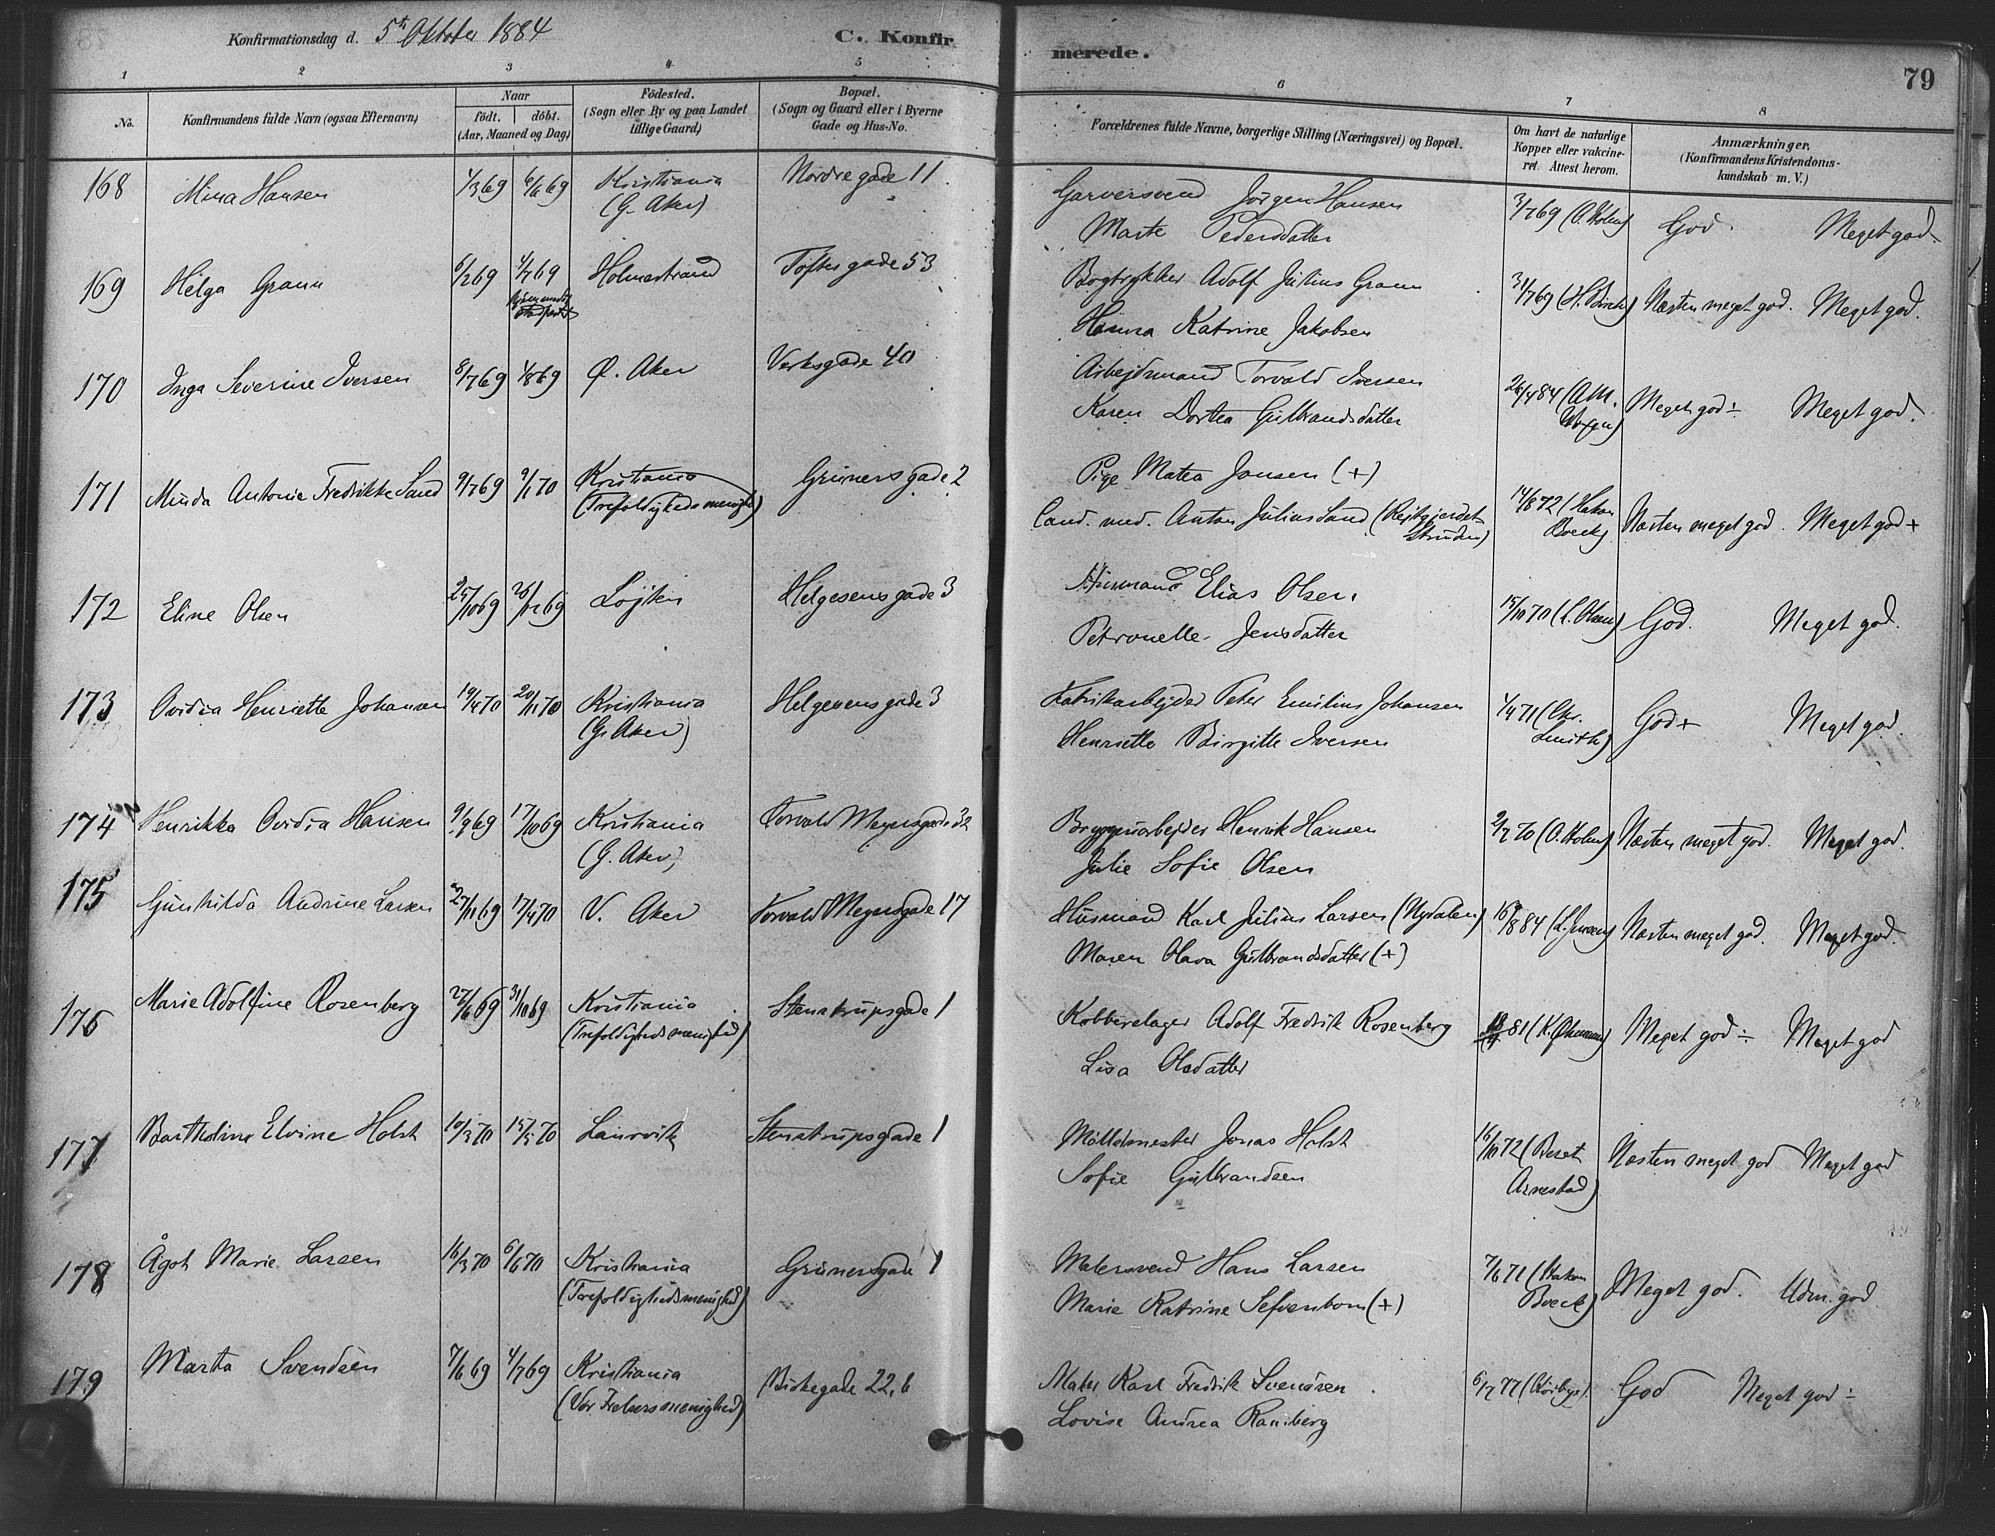 Konfirmationsdag d. 5te Oktober 1884
C. Konfirmerede.
79
1 2 3 4 5 6 7 8
No.
Konfirmandens fulde Navn (ogsaa Efternavn)
Naar
født. døbt.
(Aar, Maaned og Dag)
Fødested.
(Sogn eller By og paa Landet
tillige Gaard)
Bopæl.
(Sogn og Gaard eller i Byerne
Gade og Hus-No.
Forældrenes fulde Navne, borgerlige Stilling (Næringsvei) og Bopæl.
Om havt de naturlige
Kopper eller vakcine-
ret. Attest herom.
Anmærkninger.
(Konfirmandens Kristendoms-
kundskab m. V.)
168 Mina Hansen 1/3 69 6/6 69 Kristiania Nordregade 11 Garversvend Jørgen Hansen 3/7 69 (A. Holm) God Meget god
(G. Aker) Marte Pedersdatter
169 Helga Gram 6/2 69 4/7 69 Holmestrand Toftesgade 53 Bogtrykker Adolf Julius Gram 3/7 69 (H. Birch) Næsten meget god. Meget god.
Hanna Katrine Jakobsen
170 Inga Severine Iversen 8/7 69 1/8 69 Ø. Aker Verksgade 40 Arbejdsmand Torvald Iversen 26/4 84 (A.M. Meget god ÷ Meget god.
Karen Dortea Gulbrandsdatter
171 Minda Antonie Fredrikke Sand 9/7 69 9/1 70 Kristiania Grüners gade 2 Pige Matea Jansen (+)
(Trefoldighedsmenighed) Cand. med. Anton Julius Sand 14/8 72 (Hakon Boeck) Næsten meget god. Meget god +
172 Eline Olsen 25/10 69 26/12 69 Løjten Helgesens gade 3 Husmand Elias Olsen. 15/10 70 (L. Olsen) God. Meget god.
Petronelle Jensdatter
173 Ovidia Henriette Johansen 19/4 70 20/11 70 Kristiania Helgesens gade 3 Fabrikarbejder Peter Emilius Johansen 1/4 71 (Chr. Smith) God + Meget god.
(G. Aker) Henriette Birgitte Iversen
174 Henrikka Ovidia Hansen 9/9 69 17/10 69 Kristiania Torvald Meyersgade 32 Bryggeriarbejder Henrik Hansen 2/7 70 (A. Holm) Næsten meget god. Meget god.
(G. Aker) Julie Sofie Olsen
175 Gunhilda Andrine Larsen 27/11 69 17/4 70 V. Aker Torvald Meyersgade 17 Husmand Karl Julius Larsen (Nydalen) 16/8 84 (L. Jensen) Næsten meget god. Meget god.
Maren Olava Gulbrandsdatter (+)
176 Marie Adolfine Rosenberg 27/6 69 31/10 69 Kristiania Stenstrupsgade 1 Kobberslager Adolf Fredrik Rosenberg 81 Meget god ÷ Meget god
(Trefoldighedsmenighed) Lisa Olsdatter
177 Bartholine Elvine Holst 10/3 70 15/5 70 Laurvik Stenstrupsgade 1 Møllemester Jonas Holst 16/10 72 (Berent Arnestad) Næsten meget god Meget god
Sofie Gulbrandsen
178 Ågot Marie Larsen 16/3 70 6/6 70 Kristiania Grünersgade 1 Malersvend Hans Larsen 7/6 71 (Hakon Boeck) Meget god. Udm. god
(Trefoldighedsmenighed) Marie Katrine Sefvenbom (+)
179 Marta Svendsen 7/6 69 4/7 69 Kristiania Birkegade 22, b Maler Karl Fredrik Svendsen 6/7 77 God Meget god ÷
(Vor Frelsers menighed) Lovise Andrea Ramberg